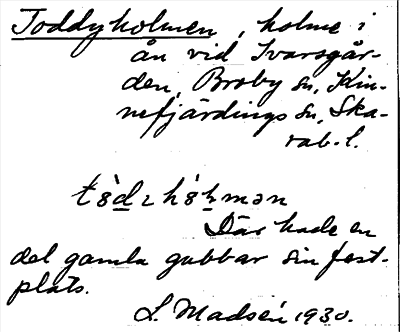 Toddyholmen, holme i
ån vid Ivarsgår-
den, Broby sn, Kin-
nefjärdings hd, Ska-
rab. l.
Där hade en
del gamla gubbar sin fest-
plats.
L. Madsén 1930.